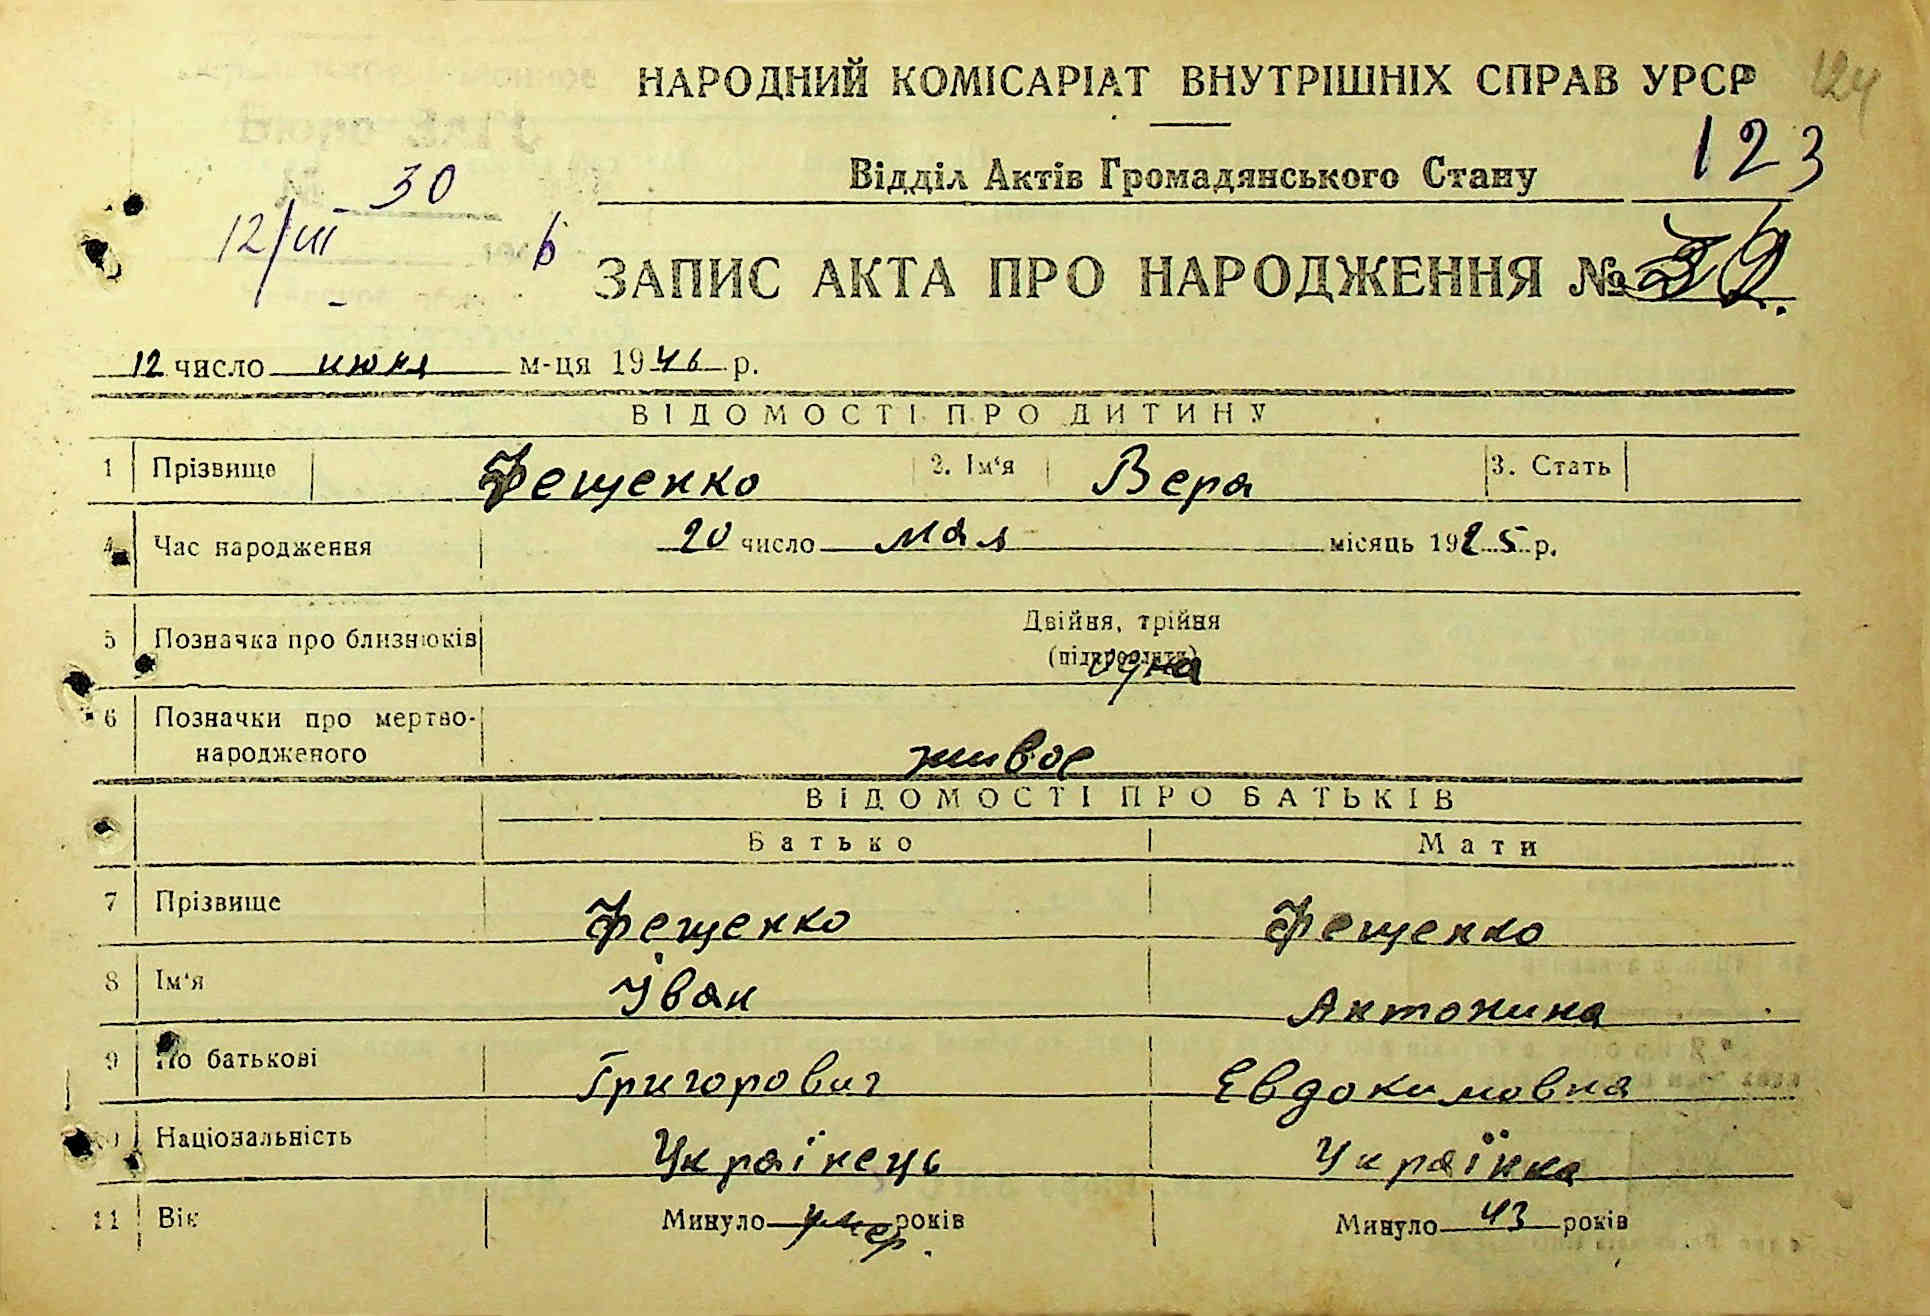 НАРОДНИЙ КОМІСАРІАТ ВНУТРІШНІХ СПРАВ УРСР
124
123
Відділ Актів Громадянського Стану
30
12/III 6
ЗАПИС АКТА ПРО НАРОДЖЕННЯ №
12 число июня м-ця 1946 р.
ВІДОМОСТІ ПРО ДИТИНУ
1 Прізвище Фещенко 2. Ім'я Вера 3. Стать
4 Час народження 20 число мая місяць 1925 р.
5 Позначка про близнюків Двійня, трійня
(підкреслити) одна
6 Позначки про мертво-
народженого живое
ВІДОМОСТІ ПРО БАТЬКІВ
Батько Мати
7 Прізвище Фещенко Фещенко
8 Ім'я Іван Антонина
9 По батькові Григорович Евдокимовна
10 Національність Українець Українка
11 Вік Минуло умер. років Минуло 43 років